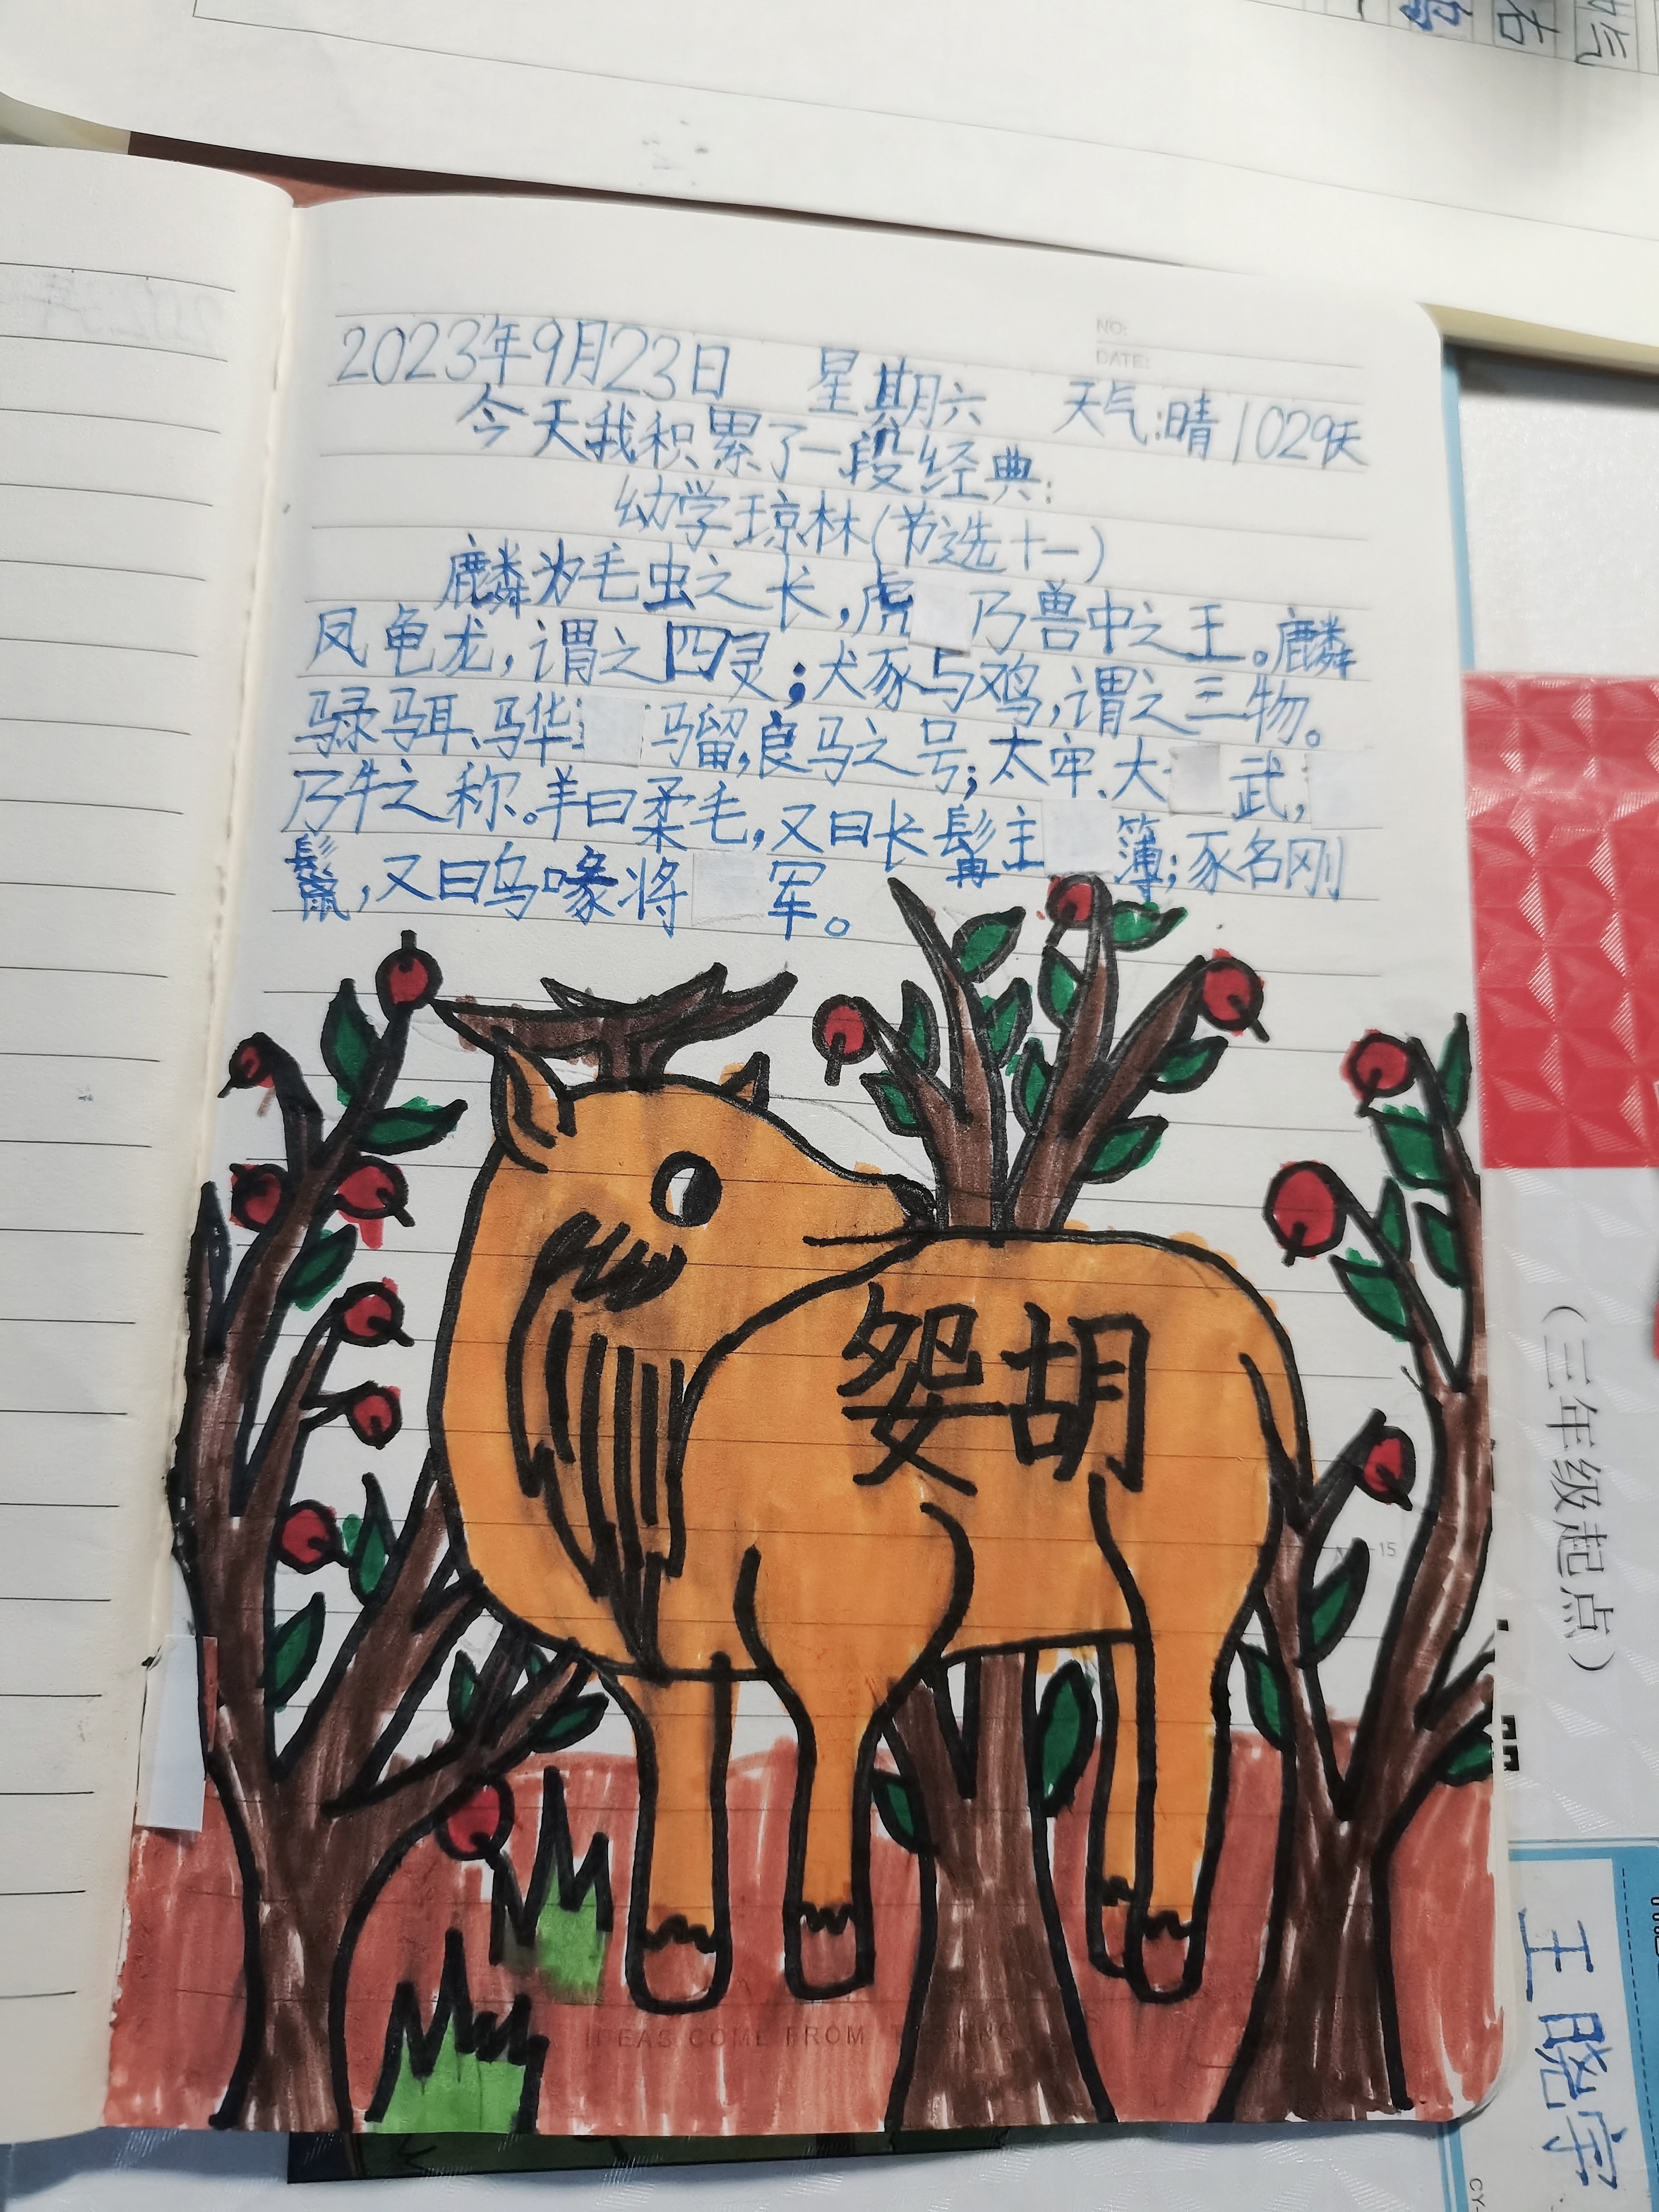 NO:
DATE:
2023年9月23日 星期六 天气:晴 1029天
今天我积累了一段经典:
幼学琼林(节选十一)
麟为毛虫之长,虎 乃兽中之王。麟
凤龟龙,谓之四灵;犬豕与鸡,谓之三物。
騄駬、骅 骝,良马之号;太牢、大 武,
乃牛之称。羊曰柔毛,又曰长髯主 簿;豕名刚
鬣,又曰乌喙将 军。
妴胡
15
IDEAS COME FROM
(三年级起点)
王晓宇